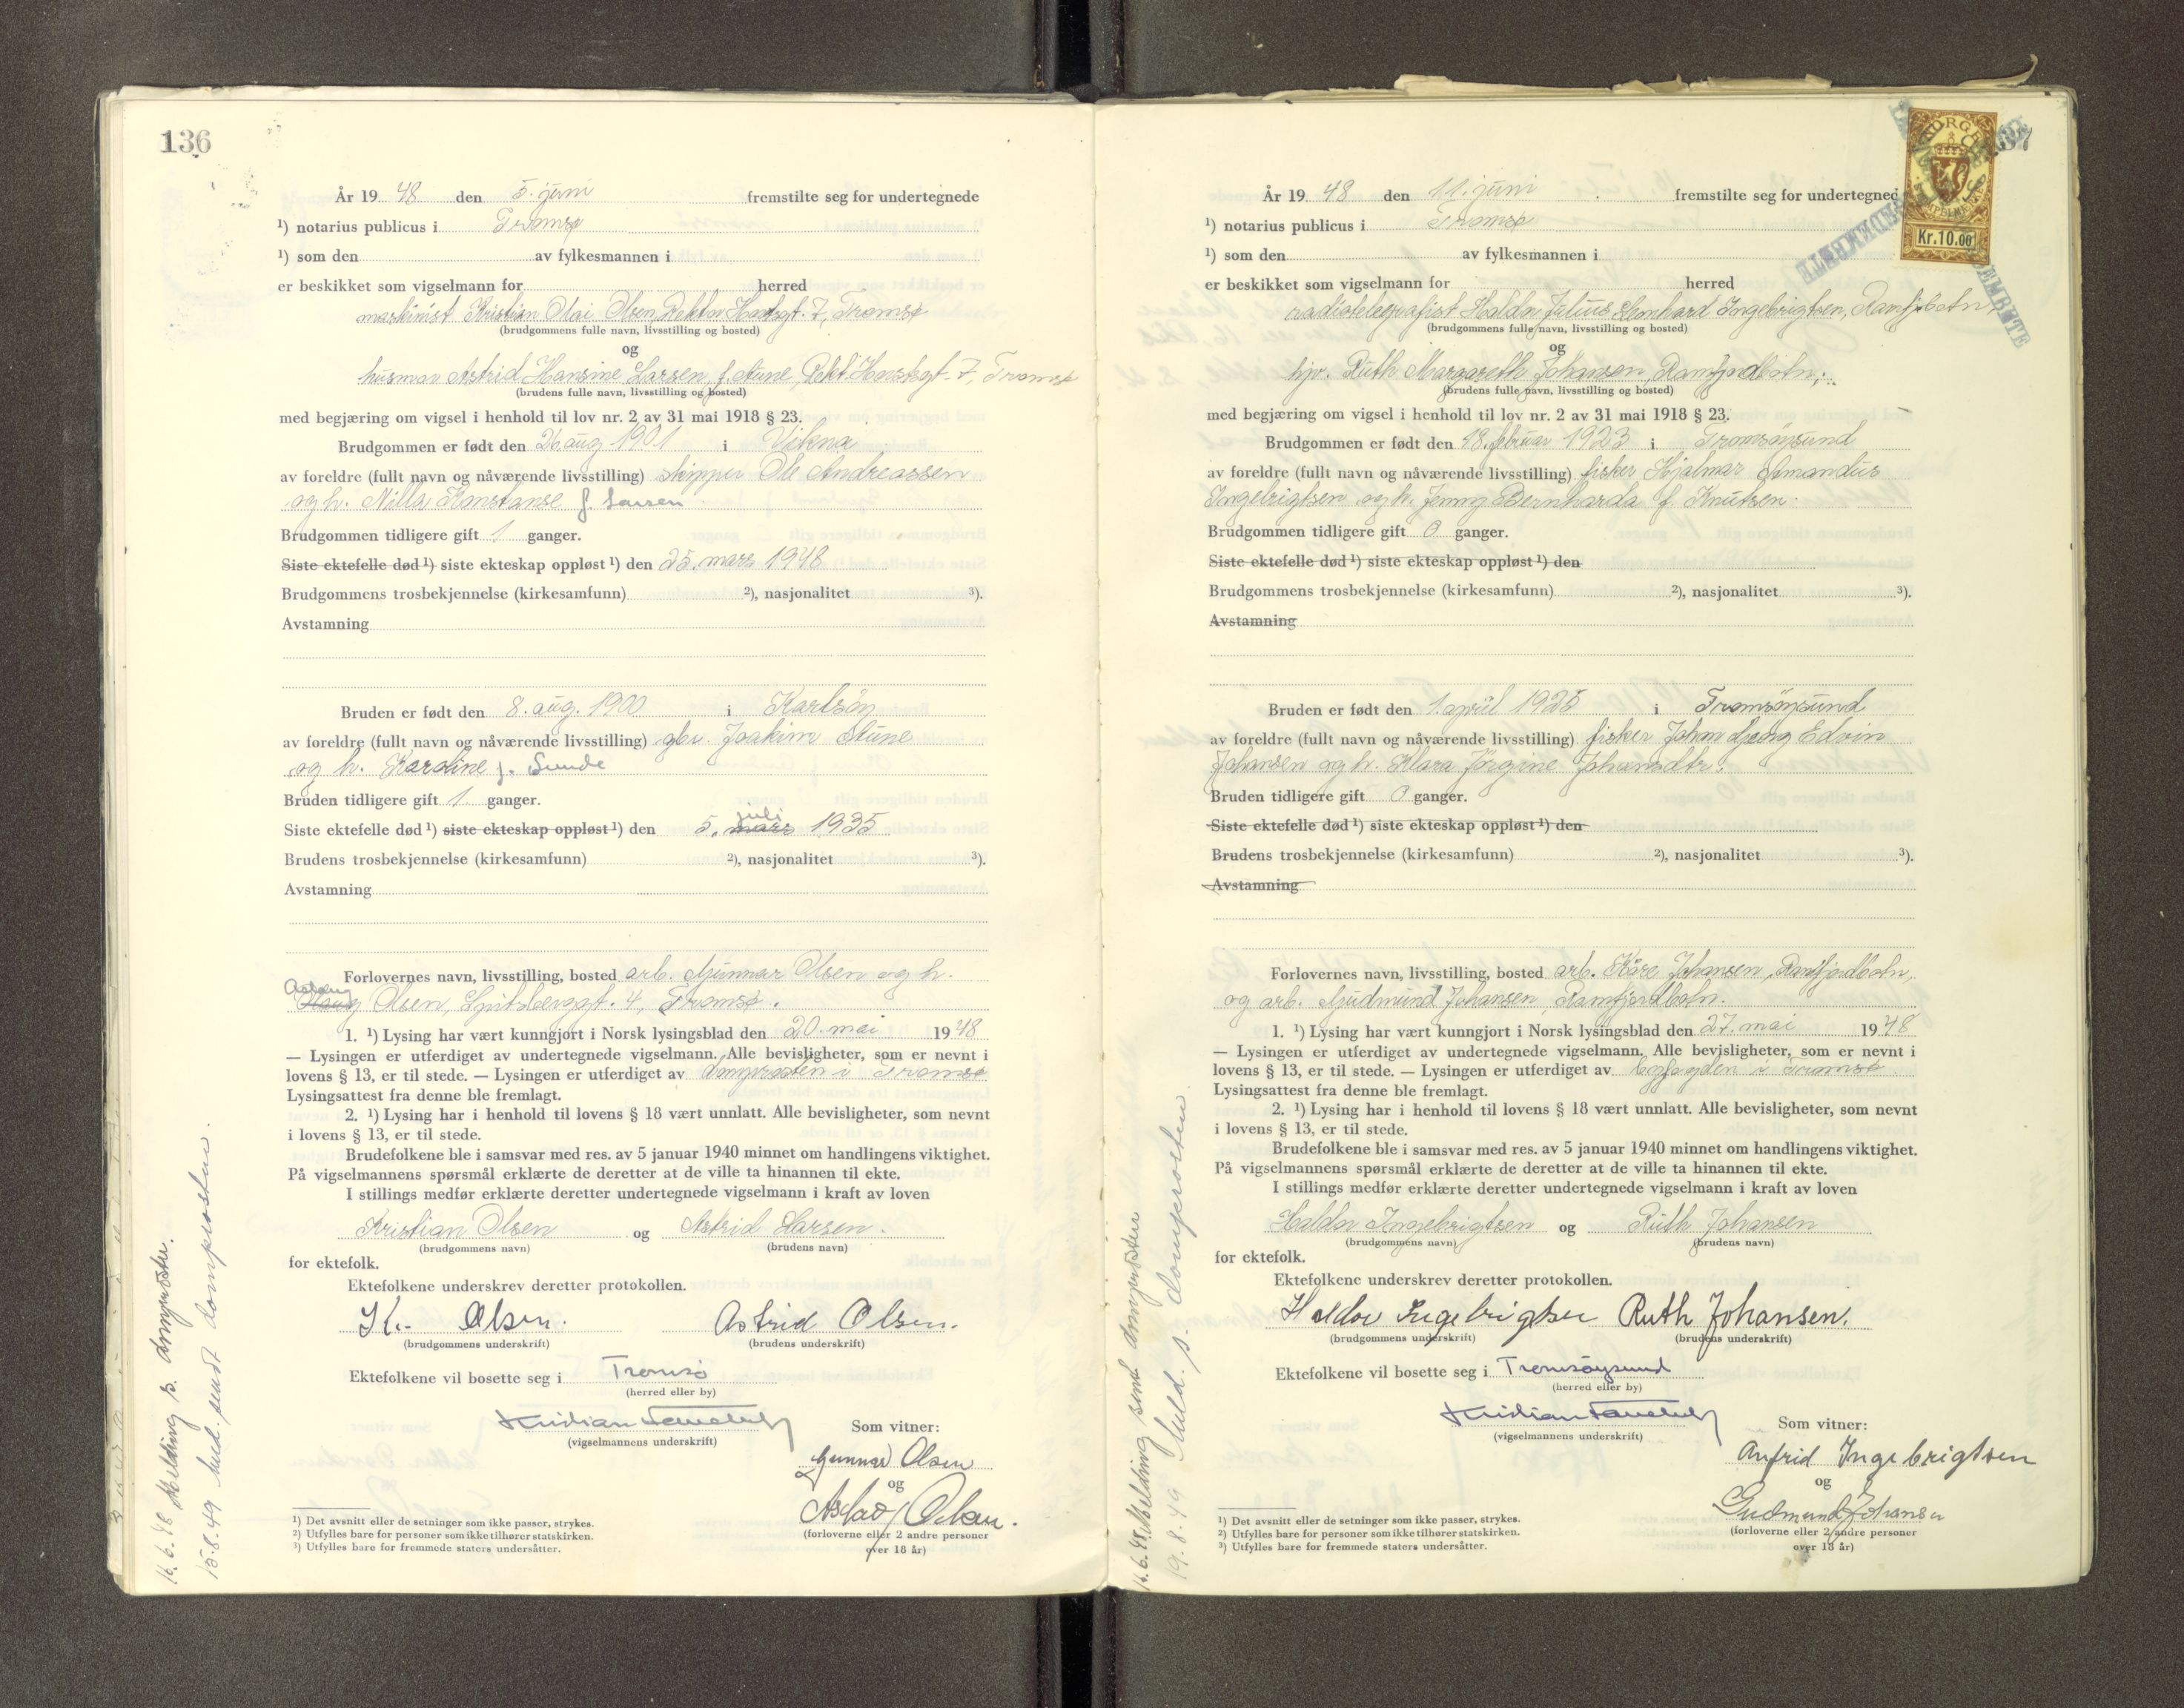 136
År 19 48 den 5. juni fremstilte seg for undertegnede
¹) notarius publicus i Tromsø
¹) som den av fylkesmannen i
er beskikket som vigselmann for herred
maskinist Kristian Olai Olsen, Rektor Horstsgt. 7, Tromsø
(brudgommens fulle navn, livsstilling og bosted)
og
husmor Astrid Hansine Larsen, f. Aune, Rekt. Horstsgt. 7, Tromsø
(brudens fulle navn, livsstilling og bosted)
med begjæring om vigsel i henhold til lov nr. 2 av 31 mai 1918 § 23.
Brudgommen er født den 26 aug 1901 i Vikna
av foreldre (fullt navn og nåværende livsstilling) skipper Ole Andreassen
og h. Nilla Konstanse f. Larsen
Brudgommen tidligere gift 1 ganger.
Siste ektefelle død ¹) siste ekteskap oppløst ¹) den 25. mars 1948
Brudgommens trosbekjennelse (kirkesamfunn) ²), nasjonalitet ³).
Avstamning
Bruden er født den 8. aug. 1900 i Karlsøy
av foreldre (fullt navn og nåværende livsstilling) gbr. Joakim Aune
og h. Karoline f. Sunde
Bruden tidligere gift 1 ganger.
juli
Siste ektefelle død ¹) siste ekteskap oppløst ¹) den 5. mars 1935
Brudens trosbekjennelse (kirkesamfunn) ²), nasjonalitet ³).
Avstamning
Forlovernes navn, livsstilling, bosted arb. Gunnar Olsen og h.
Aslaug Olsen, Spitsberggt. 4, Tromsø.
1. ¹) Lysing har vært kunngjort i Norsk lysingsblad den 20. mai 19 48
— Lysingen er utferdiget av undertegnede vigselmann. Alle bevisligheter, som er nevnt i
lovens § 13, er til stede. — Lysingen er utferdiget av domprosten i Tromsø
Lysingsattest fra denne ble fremlagt.
2. ¹) Lysing har i henhold til lovens § 18 vært unnlatt. Alle bevisligheter, som nevnt
i lovens § 13, er til stede.
Brudefolkene ble i samsvar med res. av 5 januar 1940 minnet om handlingens viktighet.
På vigselmannens spørsmål erklærte de deretter at de ville ta hinannen til ekte.
I stillings medfør erklærte deretter undertegnede vigselmann i kraft av loven
Kristian Olsen og Astrid Larsen.
(brudgommens navn) (brudens navn)
for ektefolk.
Ektefolkene underskrev deretter protokollen.
Kr. Olsen. Astrid Olsen.
(brudgommens underskrift) (brudens underskrift)
Ektefolkene vil bosette seg i Tromsø
(herred eller by)
Kristian
(vigselmannens underskrift)
Som vitner:
Gunnar Olsen
og
Aslaug Olsen.
(forloverne eller 2 andre personer
over 18 år)
¹) Det avsnitt eller de setninger som ikke passer, strykes.
²) Utfylles bare for personer som ikke tilhører statskirken.
³) Utfylles bare for fremmede staters undersåtter.
16.6.48 Melding s. domprosten.
15.8.49 meld. sendt domprosten.
NORGE
Kr. 10.00
År 19 48 den 11. juni fremstilte seg for undertegned
¹) notarius publicus i Tromsø
¹) som den av fylkesmannen i
er beskikket som vigselmann for herred
radiotelegrafist Haldor Julius Leonhard Ingebrigtsen, Ramfjordbotn
(brudgommens fulle navn, livsstilling og bosted)
og
hjv. Ruth Margareth Johansen, Ramfjordbotn,
(brudens fulle navn, livsstilling og bosted)
med begjæring om vigsel i henhold til lov nr. 2 av 31 mai 1918 § 23.
Brudgommen er født den 18. februar 1923 i Tromsøysund
av foreldre (fullt navn og nåværende livsstilling) fisker Hjalmar Amandus
Ingebrigtsen og h. Jenny Bernharda f. Knutsen.
Brudgommen tidligere gift 0 ganger.
Siste ektefelle død ¹) siste ekteskap oppløst ¹) den
Brudgommens trosbekjennelse (kirkesamfunn) ²), nasjonalitet ³).
Avstamning
Bruden er født den 1. april 1928 i Tromsøysund
av foreldre (fullt navn og nåværende livsstilling) fisker Johan Georg Edvin
Johansen og h. Klara Jørgine Johansdtr.
Bruden tidligere gift 0 ganger.
Siste ektefelle død ¹) siste ekteskap oppløst ¹) den
Brudens trosbekjennelse (kirkesamfunn) ²), nasjonalitet ³).
Avstamning
Forlovernes navn, livsstilling, bosted arb. Kåre Johansen, Ramfjordbotn,
og arb. Gudmund Johansen, Ramfjordbotn.
1. ¹) Lysing har vært kunngjort i Norsk lysingsblad den 27. mai 19 48
— Lysingen er utferdiget av undertegnede vigselmann. Alle bevisligheter, som er nevnt i
lovens § 13, er til stede. — Lysingen er utferdiget av byfogden i Tromsø.
Lysingsattest fra denne ble fremlagt.
2. ¹) Lysing har i henhold til lovens § 18 vært unnlatt. Alle bevisligheter, som nevnt
i lovens § 13, er til stede.
Brudefolkene ble i samsvar med res. av 5 januar 1940 minnet om handlingens viktighet.
På vigselmannens spørsmål erklærte de deretter at de ville ta hinannen til ekte.
I stillings medfør erklærte deretter undertegnede vigselmann i kraft av loven
Haldor Ingebrigtsen og Ruth Johansen
(brudgommens navn) (brudens navn)
for ektefolk.
Ektefolkene underskrev deretter protokollen.
Haldor Ingebrigtsen Ruth Johansen.
(brudgommens underskrift) (brudens underskrift)
Ektefolkene vil bosette seg i Tromsøysund
(herred eller by)
Kristian
(vigselmannens underskrift)
Som vitner:
Anfrid Ingebrigtsen
og
Gudmund Johansen
(forloverne eller 2 andre personer
over 18 år)
¹) Det avsnitt eller de setninger som ikke passer, strykes.
²) Utfylles bare for personer som ikke tilhører statskirken.
³) Utfylles bare for fremmede staters undersåtter.
16.6.48 Melding sent domprosten
19.8.49 Meld. s. domprosten